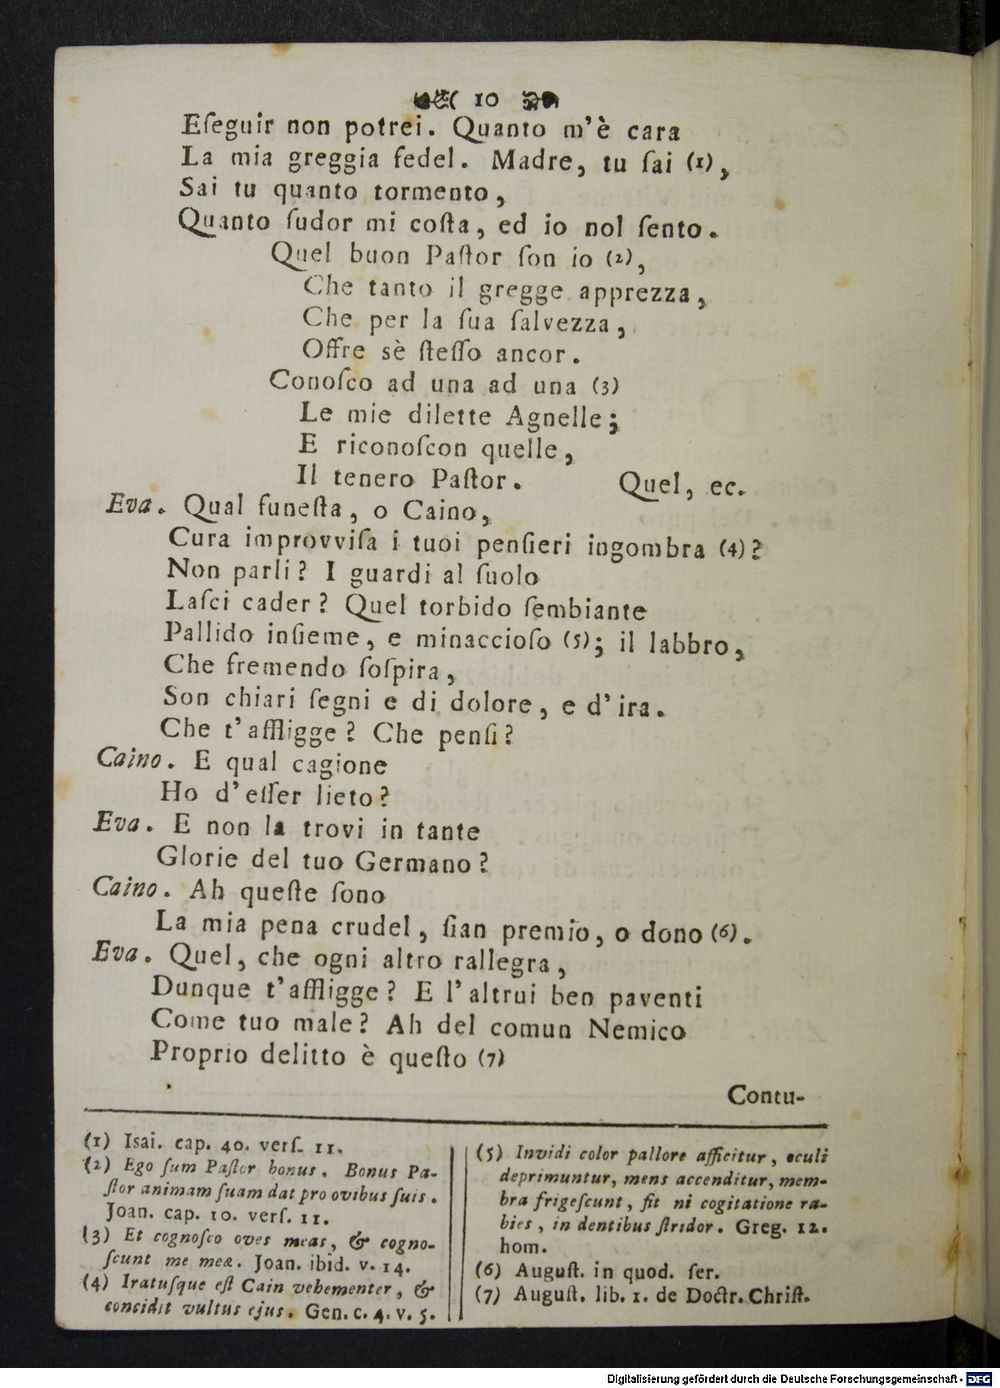 10
Eſeguir non potrei. Quanto m'è cara
La mia greggia fedel. Madre, tu ſai (1),
Sai tu quanto tormento,
Quanto ſudor mi coſta, ed io nol ſento.
Quel buon Paſtor ſon io (2),
Che tanto il gregge apprezza,
Che per la ſua ſalvezza,
Offre sè ſteſſo ancor.
Conoſco ad una ad una (3)
Le mie dilette Agnelle;
E riconoſcon quelle,
Il tenero Paſtor. Quel, ec.
Eva. Qual funeſta, o Caino,
Cura improvviſa i tuoi penſieri ingombra (4)?
Non parli? I guardi al ſuolo
Laſci cader? Quel torbido ſembiante
Pallido inſieme, e minaccioſo (5); il labbro,
Che fremendo ſoſpira,
Son chiari ſegni e di dolore, e d'ira.
Che t'affligge? Che penſi?
Caino. E qual cagione
Ho d'eſſer lieto?
Eva. E non la trovi in tante
Glorie del tuo Germano?
Caino. Ah queſte ſono
La mia pena crudel, ſian premio, o dono (6).
Eva. Quel, che ogni altro rallegra,
Dunque t'affligge? E l'altrui ben paventi
Come tuo male? Ah del comun Nemico
Proprio delitto è queſto (7)
Contu-
(1) Isai. cap. 40. verſ. 11.
(2) Ego ſum Paſtor bonus. Bonus Pa-
ſtor animam ſuam dat pro ovibus ſuis.
Joan. cap. 10. verſ. 11.
(3) Et cognoſco oves meas, & cogno-
ſcunt me meæ. Joan. ibid. v. 14.
(4) Iratuſque eſt Cain vehementer, &
concidit vultus ejus. Gen. c. 4. v. 5.
(5) Invidi color pallore afficitur, oculi
deprimuntur, mens accenditur, mem-
bra frigeſcunt, fit ni cogitatione ra-
bies, in dentibus ſtridor. Greg. 12.
hom.
(6) Auguſt. in quod. ſer.
(7) Auguſt. lib. 1. de Doctr. Chriſt.
Digitalisierung gefördert durch die Deutsche Forschungsgemeinschaft - DFG